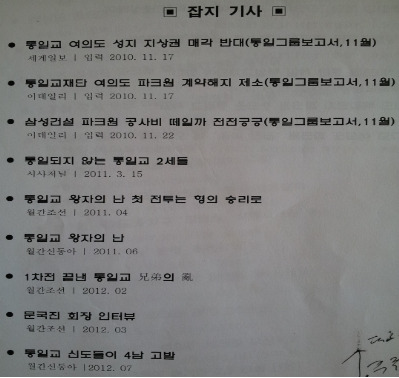 ▣ 잡지 기사 ▣
● 통일교 여의도 성지 지상권 매각 반대(통일그룹보고서,11월)
세계일보 | 입력 2010. 11. 17
● 통일교재단 여의도 파크원 계약해지 제소(통일그룹보고서,11월)
이데일리 | 입력 2010. 11. 17
● 삼성건설 파크원 공사비 떼일까 전전긍긍(통일그룹보고서,11월)
이데일리 | 입력 2010. 11. 22
● 통일되지 않는 통일교 2세들
시사저널 | 2011. 3. 15
● 통일교 왕자의 난 첫 전투는 형의 승리로
월간조선 | 2011. 04
● 통일교 왕자의 난
월간신동아 | 2011. 06
● 1차전 끝낸 통일교 兄弟의 亂
월간조선 | 2012. 02
● 문국진 회장 인터뷰
월간조선 | 2012. 03
● 통일교 신도들이 4남 고발
월간신동아 |2012. 07